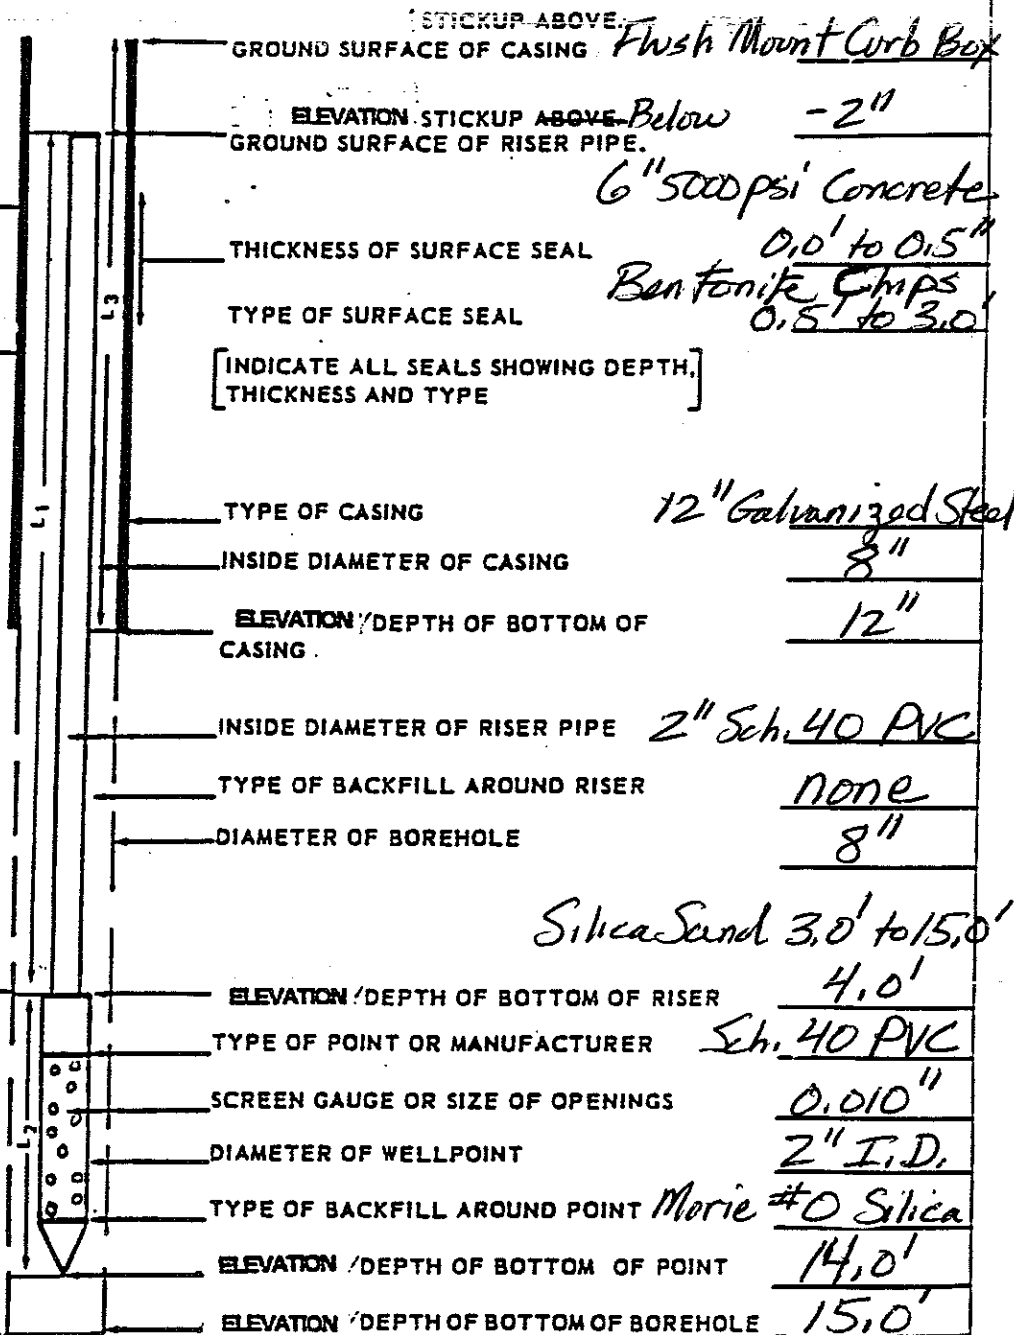 STICKUP ABOVE
GROUND SURFACE OF CASING Flush Mount Curb Box
ELEVATION STICKUP ABOVE Below -2"
GROUND SURFACE OF RISER PIPE.
6" 5000 psi Concrete
THICKNESS OF SURFACE SEAL 0.0' to 0.5"
Bentonite Chips
TYPE OF SURFACE SEAL 0.5' to 3.0'
[INDICATE ALL SEALS SHOWING DEPTH,
THICKNESS AND TYPE]
L3
L1
TYPE OF CASING 12" Galvanized Steel
INSIDE DIAMETER OF CASING 8"
ELEVATION/DEPTH OF BOTTOM OF 12"
CASING.
INSIDE DIAMETER OF RISER PIPE 2" Sch. 40 PVC
TYPE OF BACKFILL AROUND RISER none
DIAMETER OF BOREHOLE 8"
Silica Sand 3.0' to 15.0'
ELEVATION/DEPTH OF BOTTOM OF RISER 4.0'
TYPE OF POINT OR MANUFACTURER Sch. 40 PVC
SCREEN GAUGE OR SIZE OF OPENINGS 0.010"
L2
DIAMETER OF WELLPOINT 2" I.D.
TYPE OF BACKFILL AROUND POINT Morie #0 Silica
ELEVATION/DEPTH OF BOTTOM OF POINT 14.0'
ELEVATION/DEPTH OF BOTTOM OF BOREHOLE 15.0'